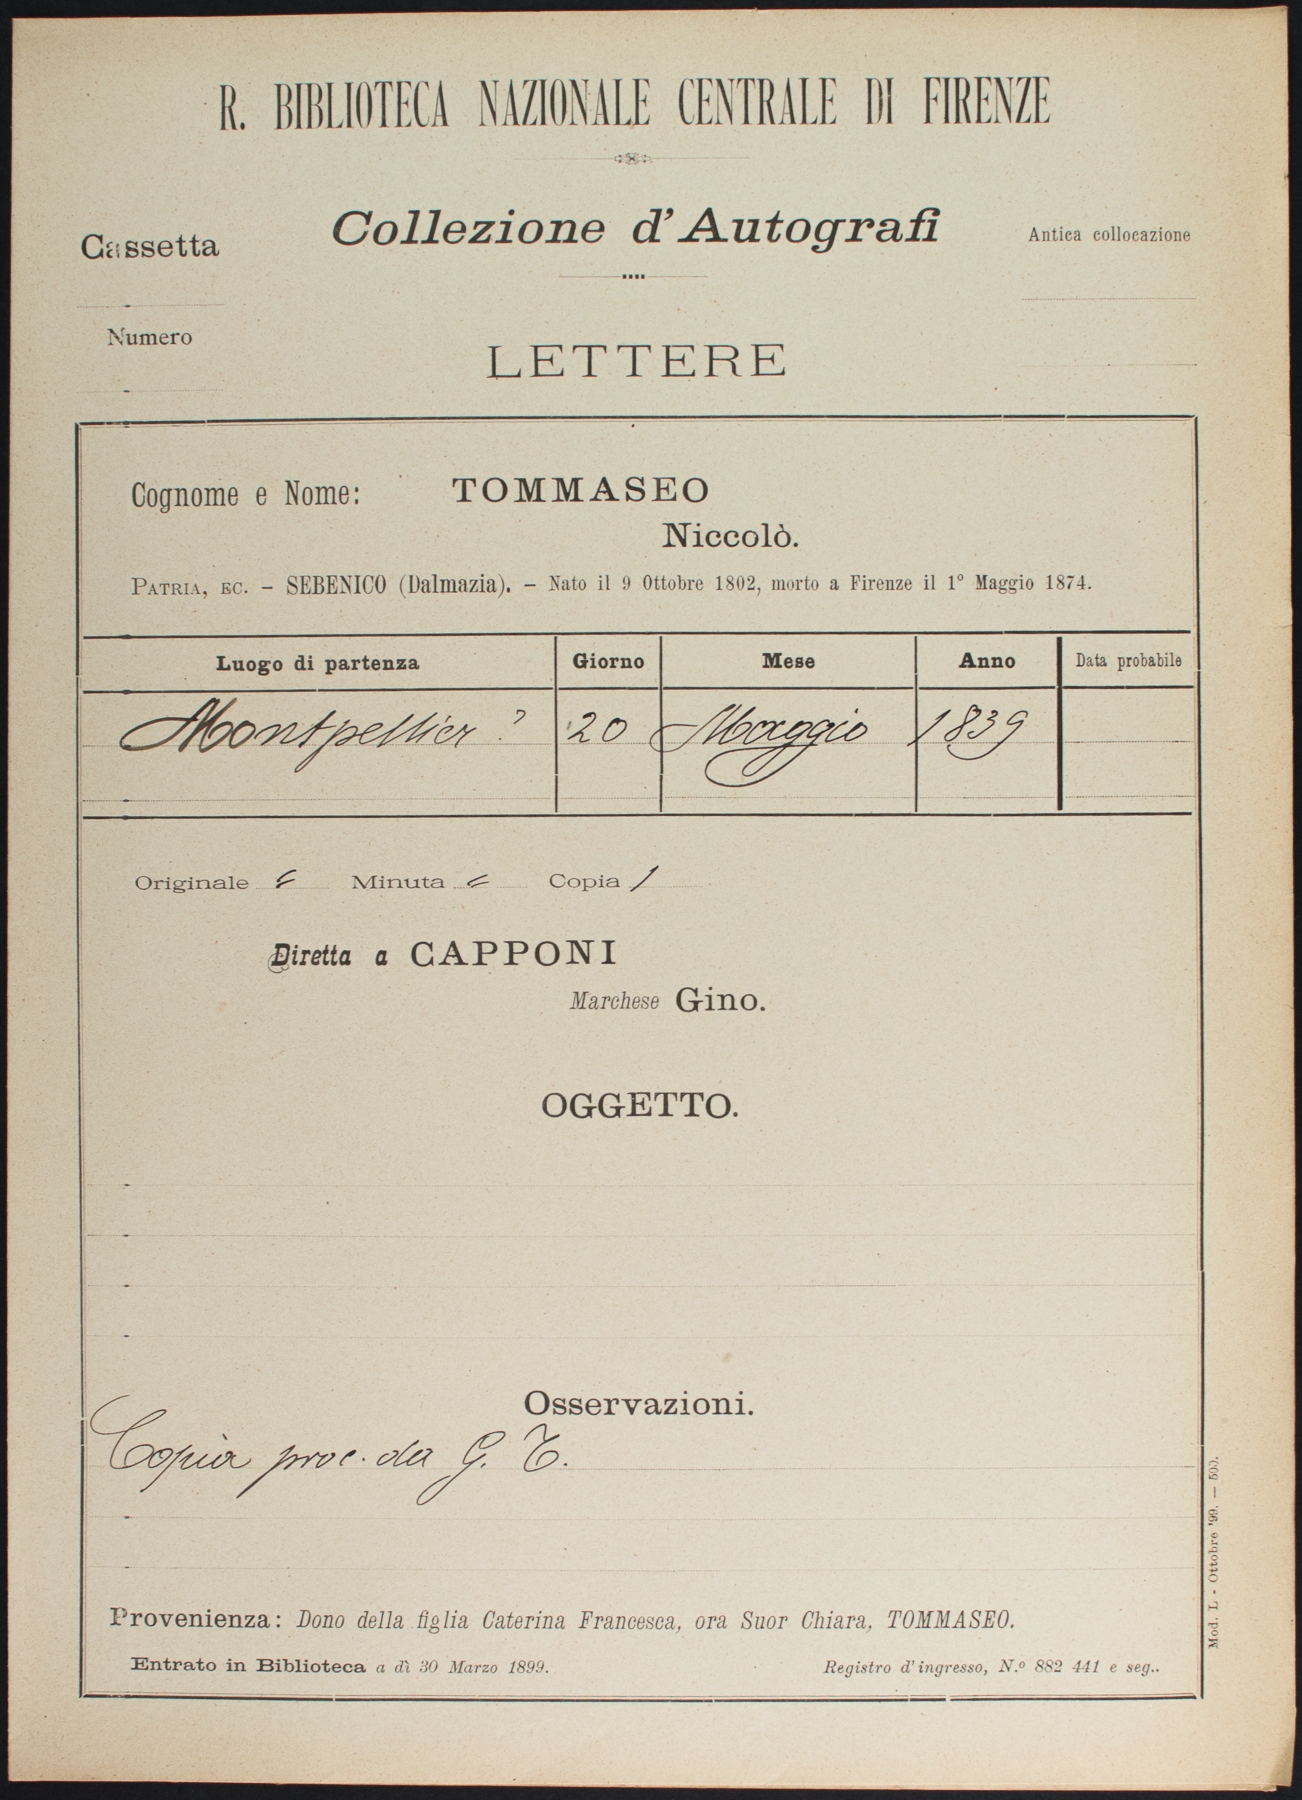 R. BIBLIOTECA NAZIONALE CENTRALE DI FIRENZE
Collezione d'Autografi
Cassetta
Antica collocazione
Numero
LETTERE
Cognome e Nome: TOMMASEO
Niccolò.
PATRIA, EC. – SEBENICO (Dalmazia). – Nato il 9 Ottobre 1802, morto a Firenze il 1° Maggio 1874.
Luogo di partenza Giorno Mese Anno Data probabile
Montpellier ? 20 Maggio 1839
Originale Minuta Copia 1
Diretta a CAPPONI
Marchese Gino.
OGGETTO.
Osservazioni.
Copia proc. da G. T.
Provenienza: Dono della figlia Caterina Francesca, ora Suor Chiara, TOMMASEO.
Entrato in Biblioteca a dì 30 Marzo 1899. Registro d'ingresso, N.º 882 441 e seg..
Mod. L - Ottobre '99. — 500.